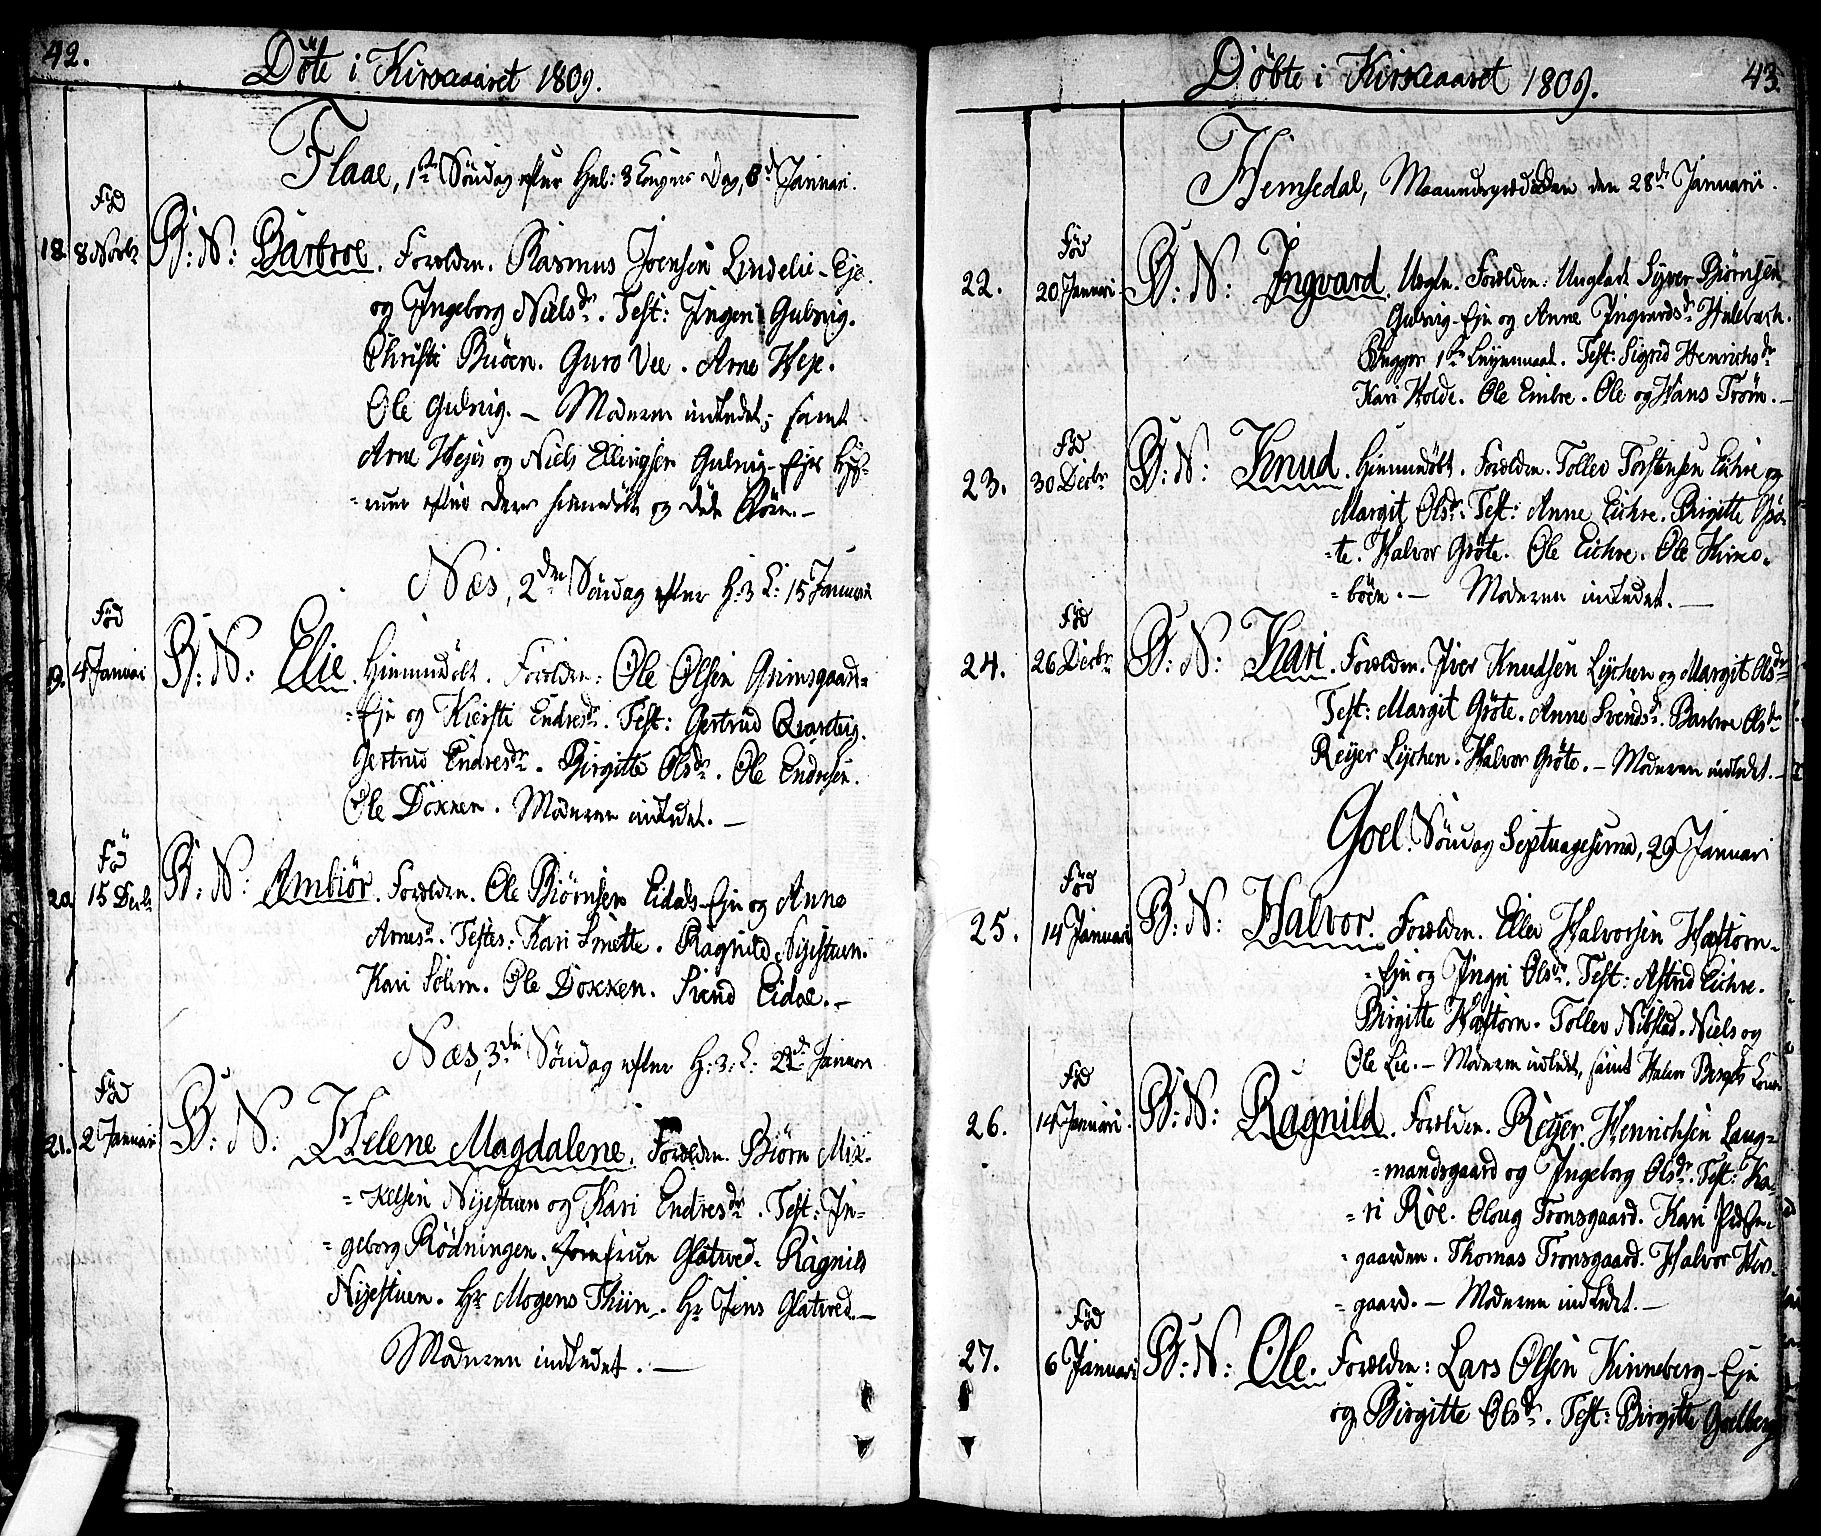 42.
Döte i Kirkeaaret 1809.
Flaae, 1ste Söndag efter Hel: 3 Kongers Dag, 8de Januari.
Föd
18. 8 Novbr B: N: Barbroe. Forældre. Rasmus Joensen Lindelie-Eje
og Ingeborg Nielsdr. Test: Ingeri Gulvig.
Christi Buöen. Guro Vee. Arne Heje.
Ole Gulvig. – Moderen indledet; samt
Arne Hejes og Niels Ellingsen Gulvig-Ejes
efter deres hiemdöbte og döde Börn. –
Næs, 2den Söndag efter H: 3 K: 15 Januari
Föd
19. 4 Januari B: N: Elie. Hiemmedöbt. Forældre: Ole Olsen Grimsgaard-
-Eje og Kiersti Endresdr. Test: Gertrud Qvarteig.
Gertrud Endresdr. Birgitte Olsdr. Ole Endresen.
Ole Dokken. Moderen indledet. –
Föd
20. 15 Decbr B: N: Ambiör. Forældre. Ole Biörnsen Eidals-Eje og Anne
Arnesdr. Testes: Kari Smette. Ragnild Nyestuen.
Kari Solem. Ole Dokken. Svend Eidal. –
Næs, 3die Söndag efter H: 3: K: 22de Januari
Föd
21. 2 Januari B: N: Helene Magdalene. Forældre. Biörn Mik-
-kelsen Nyestuen og Kari Endresdr. Test: In-
-geborg Rödningen. Jomfrue Glatved. Ragnild
Nyestuen. Hr Mogens Thiin. Hr Jens Glatved. –
Moderen indledet. –
Döbte i Kirkeaaret 1809. 43.
Hemsedal, Maanedsprædiken den 28de Januarii.
Föd
22. 20 Januari B: N: Ingvard. Uægte. Forældre: Ungkarl Syver Biörnsen
Gulvig-Eje og Anne Ingvardsdr Hulebach.
Begges 1ste Leyermaal. Test: Sigrid Henrichsdr
Kari Holde. Ole Embre. Ole og Hans Tröm. –
Föd
23. 30 Decbr B: N: Knud. Hiemmedöbt. Forældre. Tollev Torstensen Eichre og
Margit Olsdr. Test: Anne Eichre. Birgitte Grö-
-te. Halvor Gröte. Ole Eichre. Ole Kirke-
-böen. – Moderen indledet. –
Föd
24. 26 Decbr B: N: Kari. Forældre. Iver Knudsen Lychen og Margit Olsdr
Test: Margit Gröte. Anne Svendsdr. Barbroe Olsdr
Reyer Lychen. Halvor Gröte. – Moderen indledet. –
Goel. Söndag Septuagesima, 29 Januari
Föd
25. 14 Januari B: N: Halvor. Forældre. Ellev Halvorsen Hæftorn-
-Eje og Ingri Olsdr. Test: Astrid Eichre.
Birgitte Hæftorn. Tollev Nibstad. Niels og
Ole Lie. – Moderen indledet, samt Halvor Bergets Kone
Föd
26. 14 Januari. B: N: Ragnild. Forældre. Reyer Henrichsen Laug-
-mandsgaard og Ingeborg Olsdr. Test: Ka-
-ri Röe. Oloug Tronsgaard. Kari Præste-
-gaarden. Thomas Tronsgaard. Halvor
-gaard. – Moderen indledet. –
Föd
27. 6 Januari B: N: Ole. Forældre: Lars Olsen Kinneberg-Eje
og Birgitte Olsdr. Test: Birgitte Goelberg